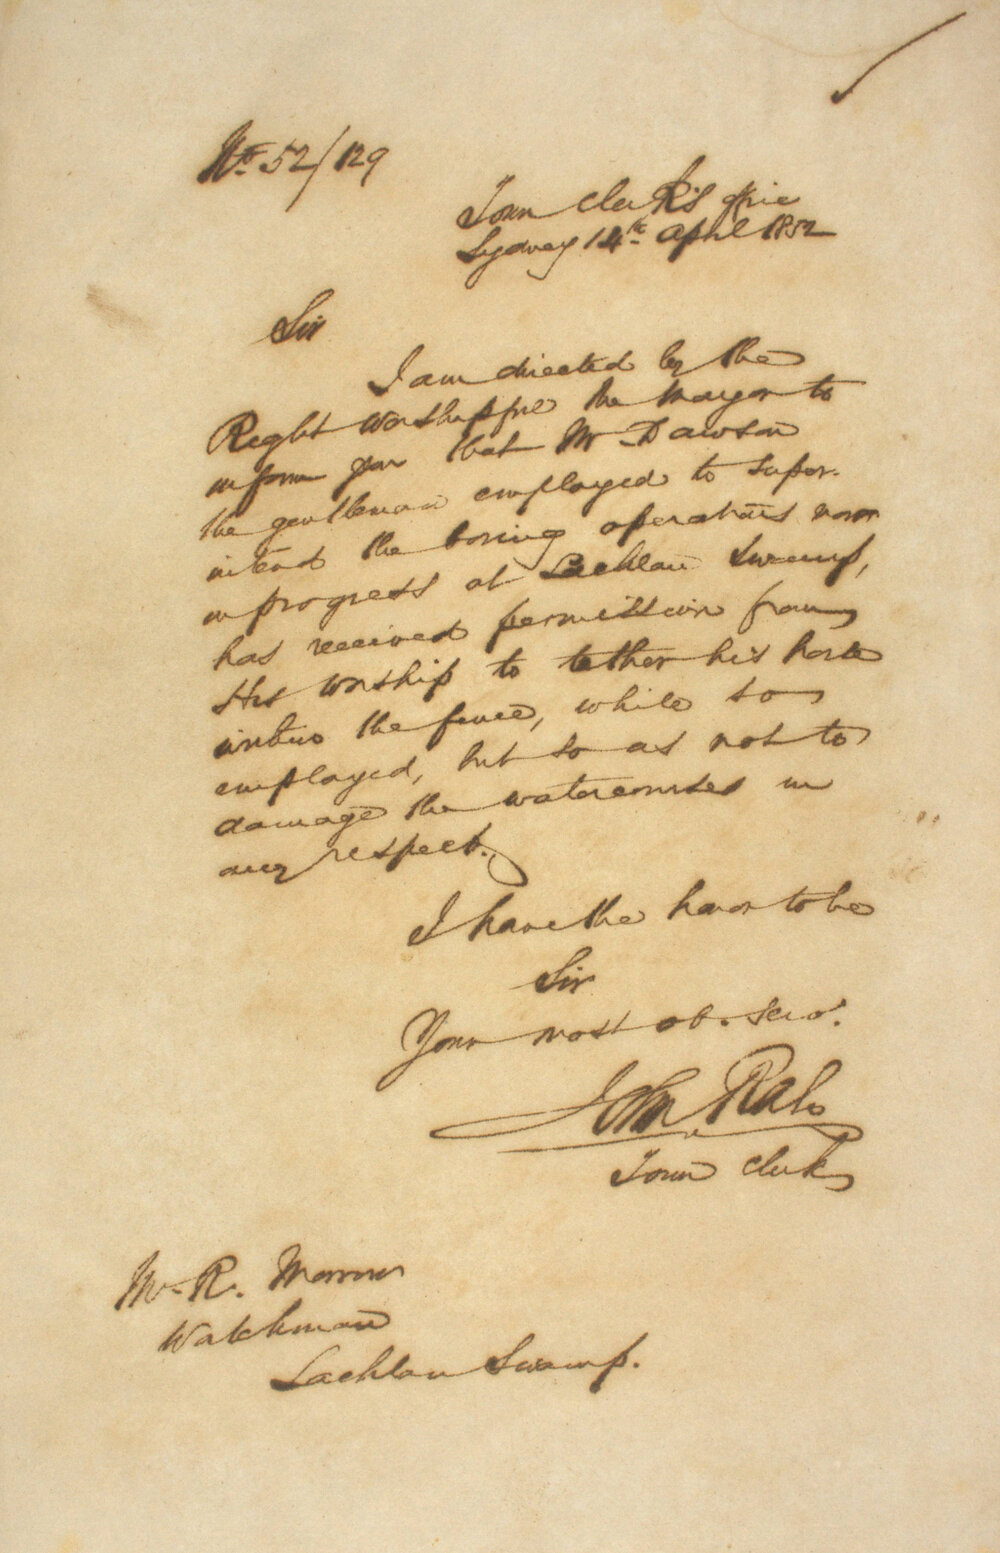 No. 52/129
Town Clerk's Office
Sydney 14th April 1852
Sir
I am directed by the
Right Worshipful the Mayor to
inform you that Mr Dawson
the gentleman employed to super-
intend the boring operations now
in progress at Lachlan Swamp,
has received permission from
His Worship to tether his horse
within the fence, while so
employed, but so as not to
damage the watercourses in
any respect.
I have the honor to be
Sir
Your most ob. serv.
John Rae
Town Clerk
Mr R.
Watchman
Lachlan Swamp.